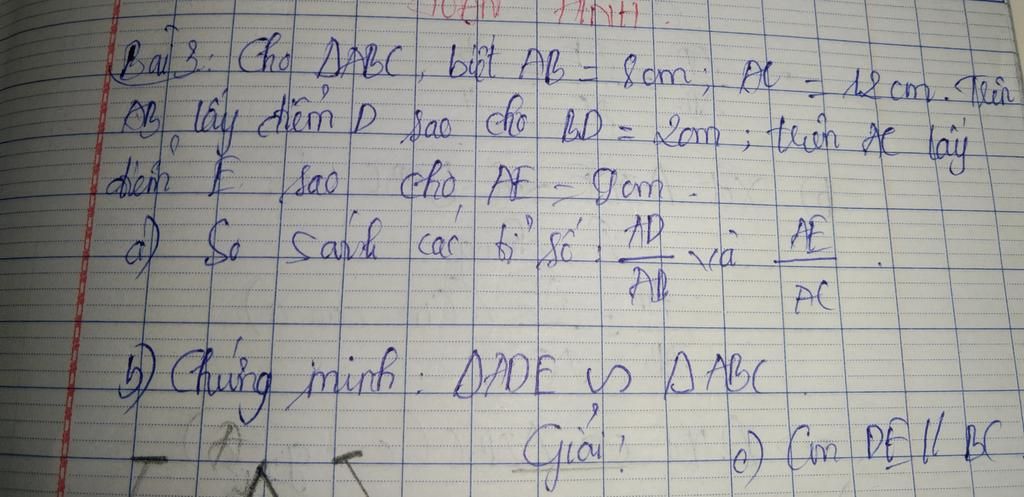 Bài 3: Cho ΔABC, biết AB = 8cm; AC = 12 cm. Trên
AB lấy điểm D sao cho BD = 2cm; trên AC lấy
điểm E sao cho AE = 9cm.
a) So sánh các tỉ số: AD/AB và AE/AC.
b) Chứng minh: ΔADE ∽ ΔABC
Giải:
c) Cm DE // BC
A